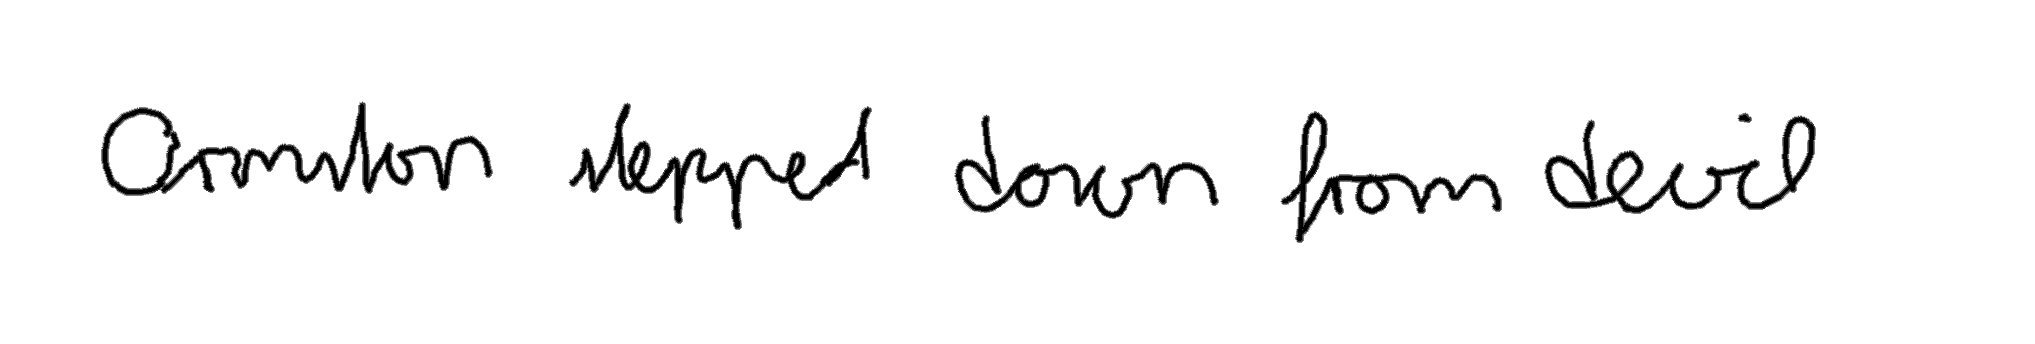 Ormston stepped down from devil